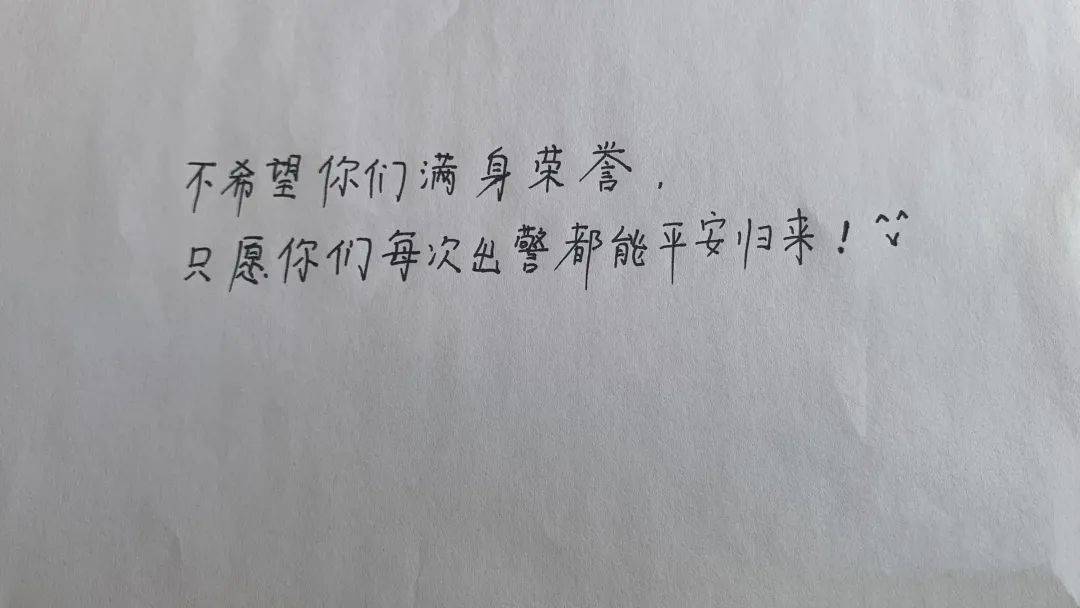 不希望你们满身荣誉，
只愿你们每次出警都能平安归来！^v^